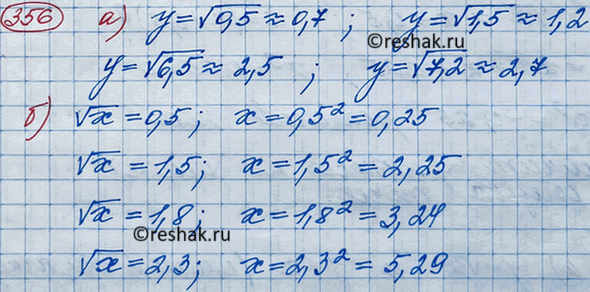 356 а) y=√0,5≈0,7 ; y=√1,5≈1,2
©reshak.ru
y=√6,5≈2,5 ; y=√7,2≈2,7
б) √x=0,5; x=0,5²=0,25
√x=1,5; x=1,5²=2,25
√x=1,8; x=1,8²=3,24
©reshak.ru
√x=2,3; x=2,3²=5,29